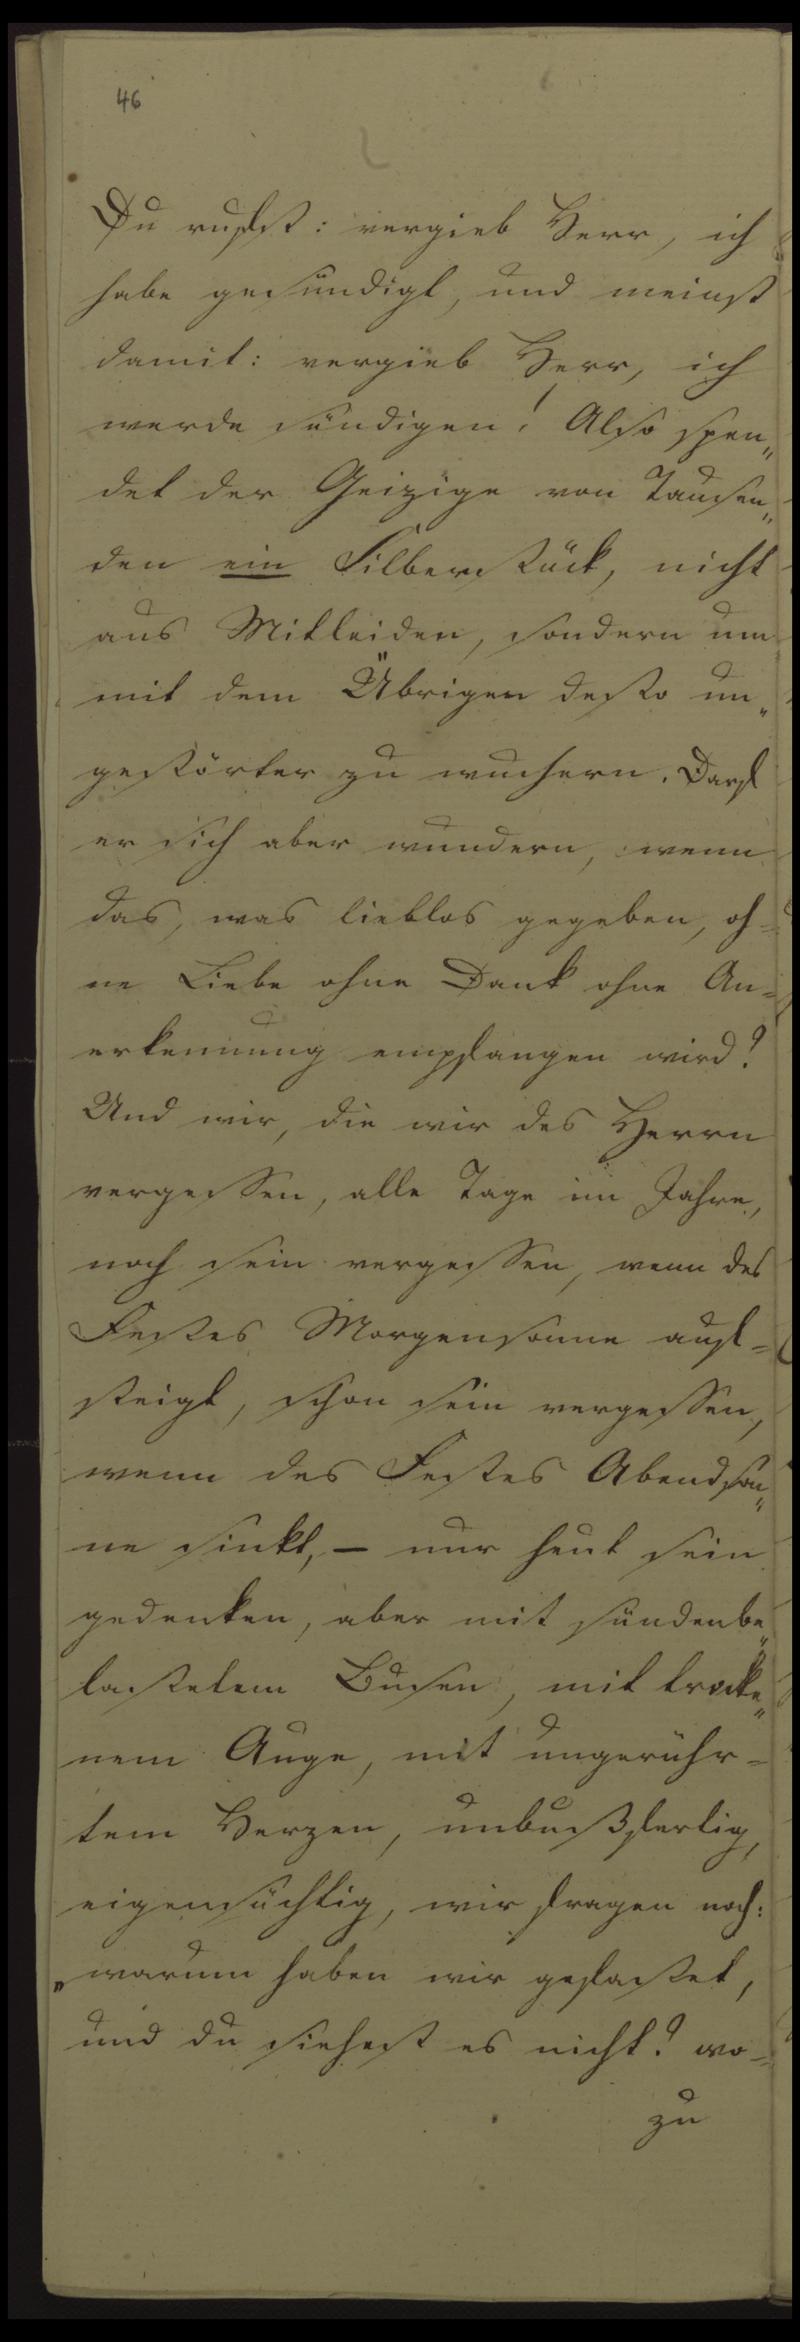 46
Du rufst: vergieb Herr, ich
habe gesündigt, und meinst
damit: vergieb Herr, ich
werde sündigen! Also spen„
det der Geizige von Tausen„
den ein Silberstück, nicht
aus Mitleiden, sondern um
mit dem Übrigen desto un„
gestörter zu wuchern. Darf
er sich aber wundern, wenn
das, was lieblos gegeben, oh=
ne Liebe ohne Dank ohne An=
erkennung empfangen wird?
Und wir, die wir des Herrn
vergessen, alle Tage im Jahre,
noch sein vergessen, wenn des
Festes Morgensonne auf=
steigt, schon sein vergessen,
wenn des Festes Abendson„
ne sinkt, – nur heut sein
gedenken, aber mit sündenbe„
lastetem Busen, mit trocke„
nem Auge, mit ungerühr=
tem Herzen, unbußfertig,
eigensüchtig, wir fragen noch:
„warum haben wir gefastet,
und du siehest es nicht? wo=
zu